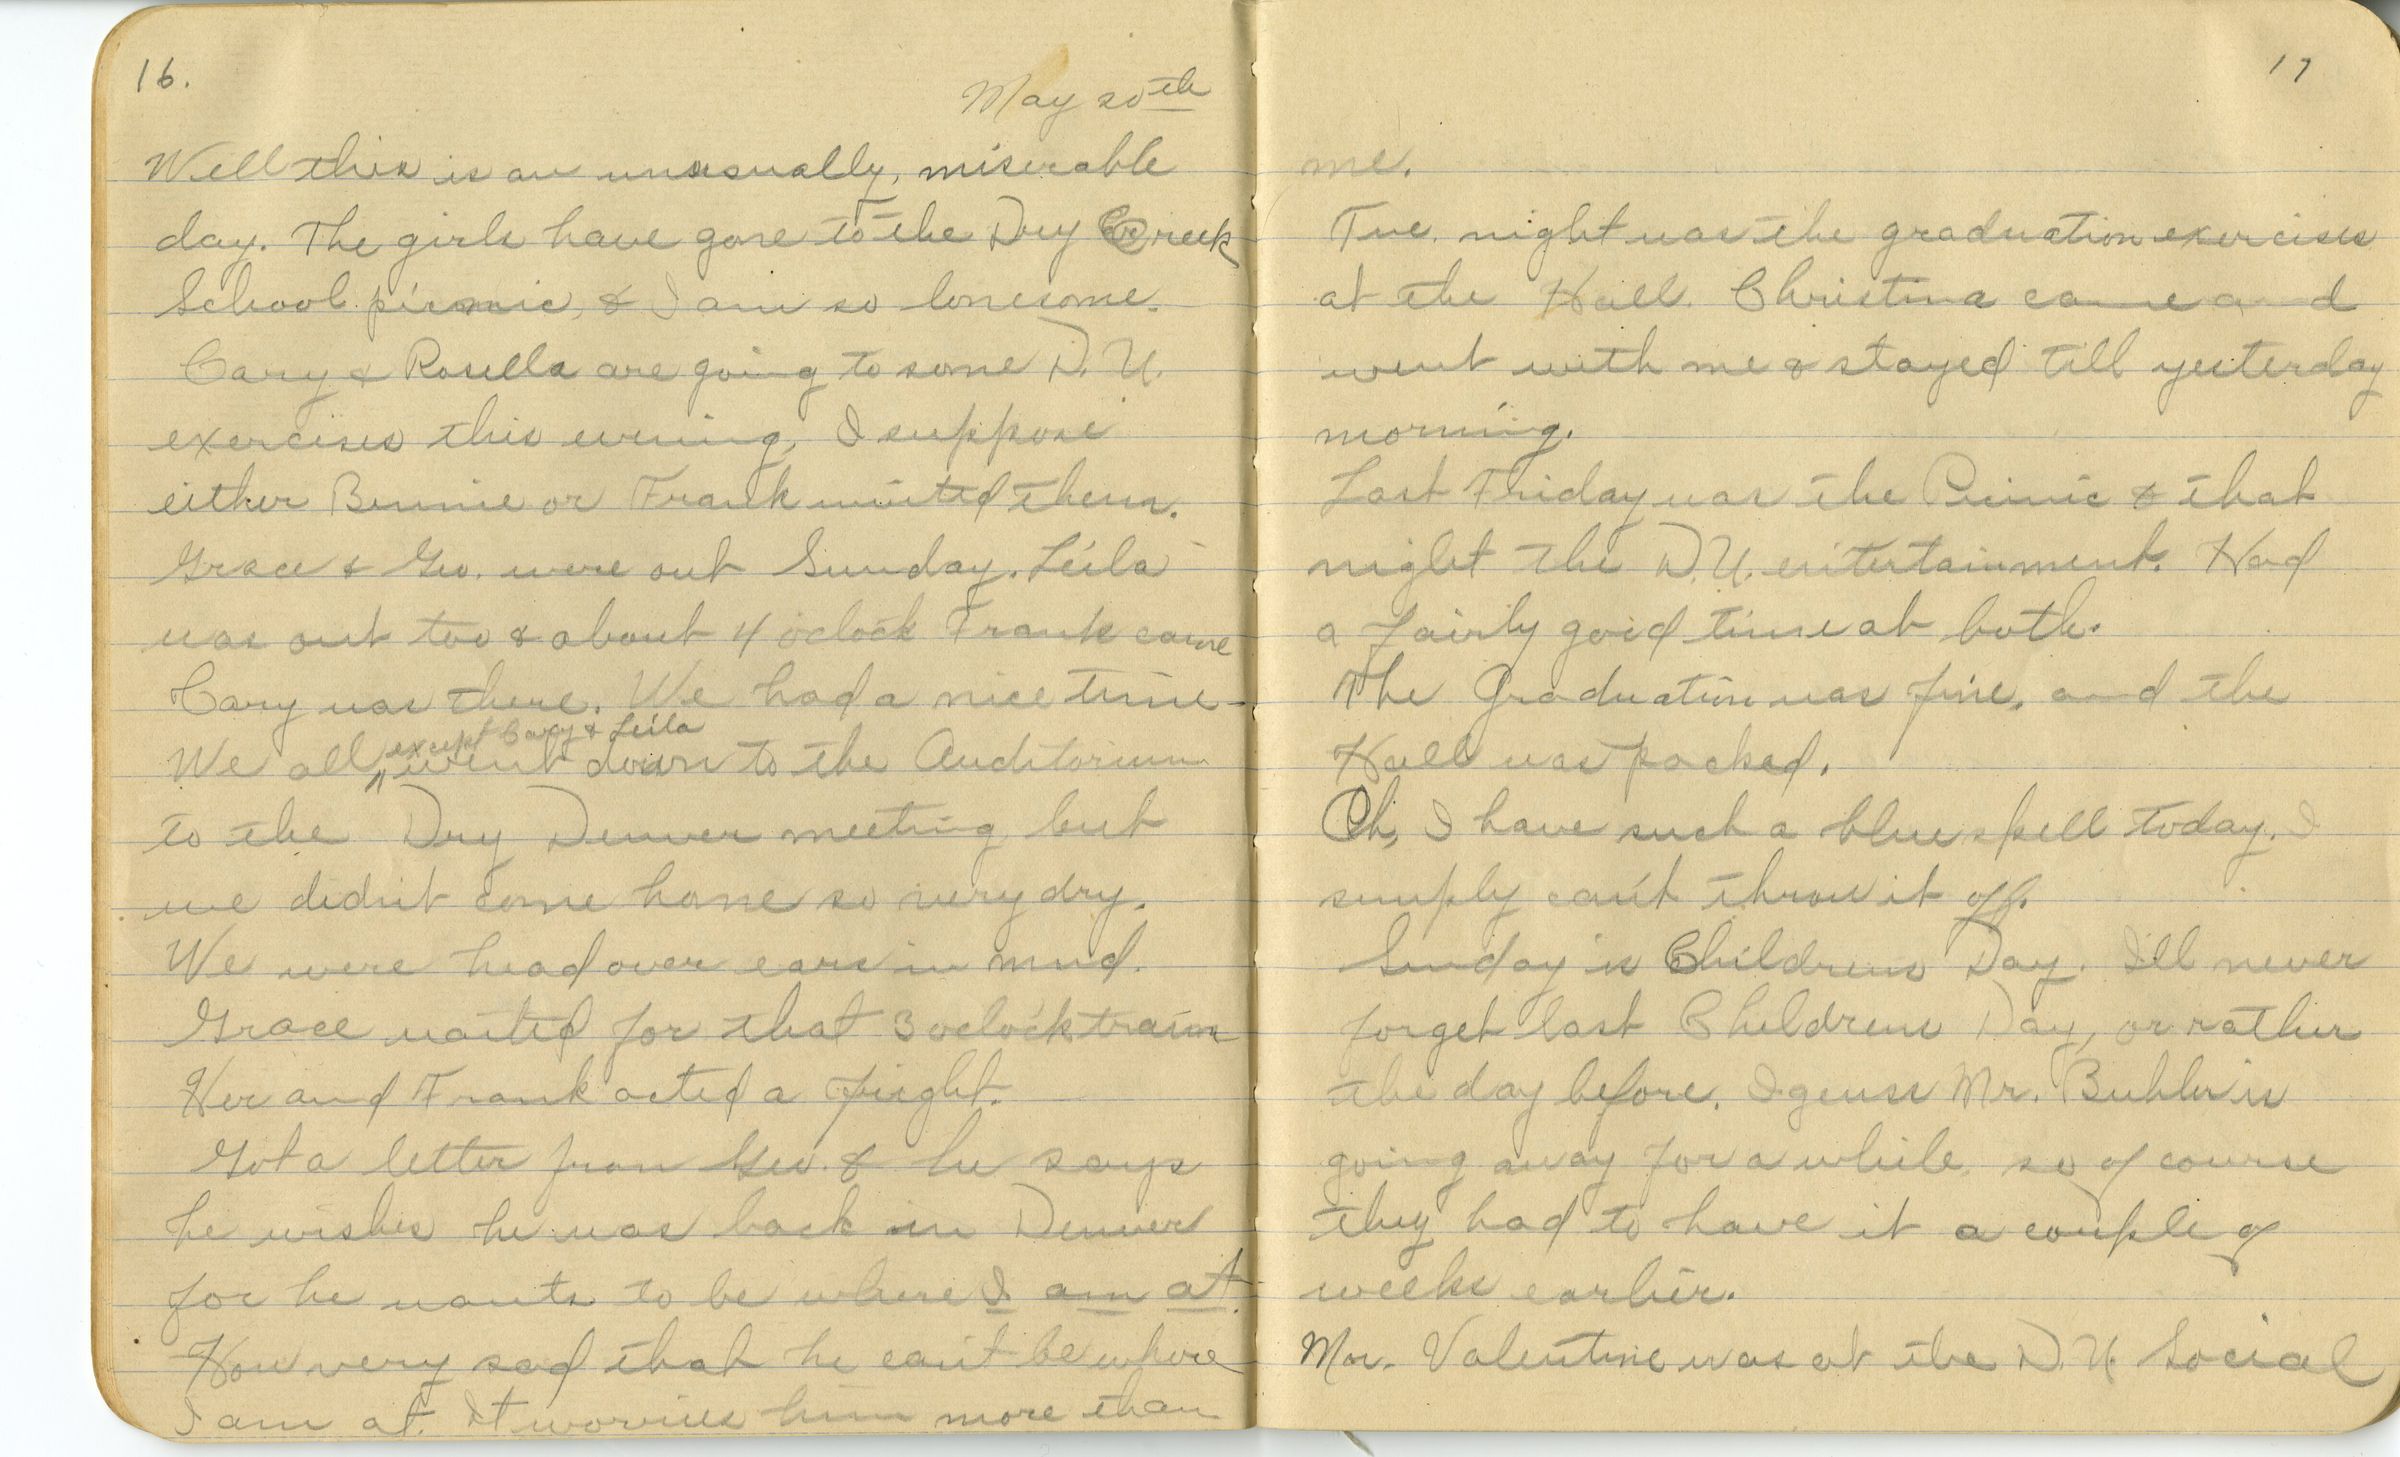 16.
May 20th
Well this is an unusually, miserable
day. The girls have gone to the Dry Creek
School picnic, & I am so lonesome.
Cary & Rosella are going to some D. U.
exercises this evening, I suppose
either Bennie or Frank invited them.
Grace & Geo. were out Sunday. Leila
was out too & about 4 o'clock Frank came
Cary was there. We had a nice time-
We all except Cary & Leila went down to the Auditorium
to the Dry Denver meeting but
we didn't come home so very dry.
We were head over ears in mud.
Grace waited for that 3 o'clock train
Her and Frank acted a fright.
Got a letter from Geo. & he says
he wishes he was back in Denver
for he wants to be where I am at.
How very sad that he can't be where
I am at. It worries him more than
17
me.
Tue. night was the graduation exercises
at the Hall. Christina came and
went with me & stayed till yesterday
morning.
Last Friday was the Picnic & that
night the D. U. entertainment. Had
a fairly good time at both.
The Graduation was fine, and the
Hall was packed.
Oh, I have such a blue spell today. I
simply can't throw it off.
Sunday is Childrens Day. I'll never
forget last Childrens Day, or rather
the day before. I guess Mr. Buhler is
going away for a while so of course
they had to have it a couple of
weeks earlier.
Mr. Valentine was at the D. U. Social